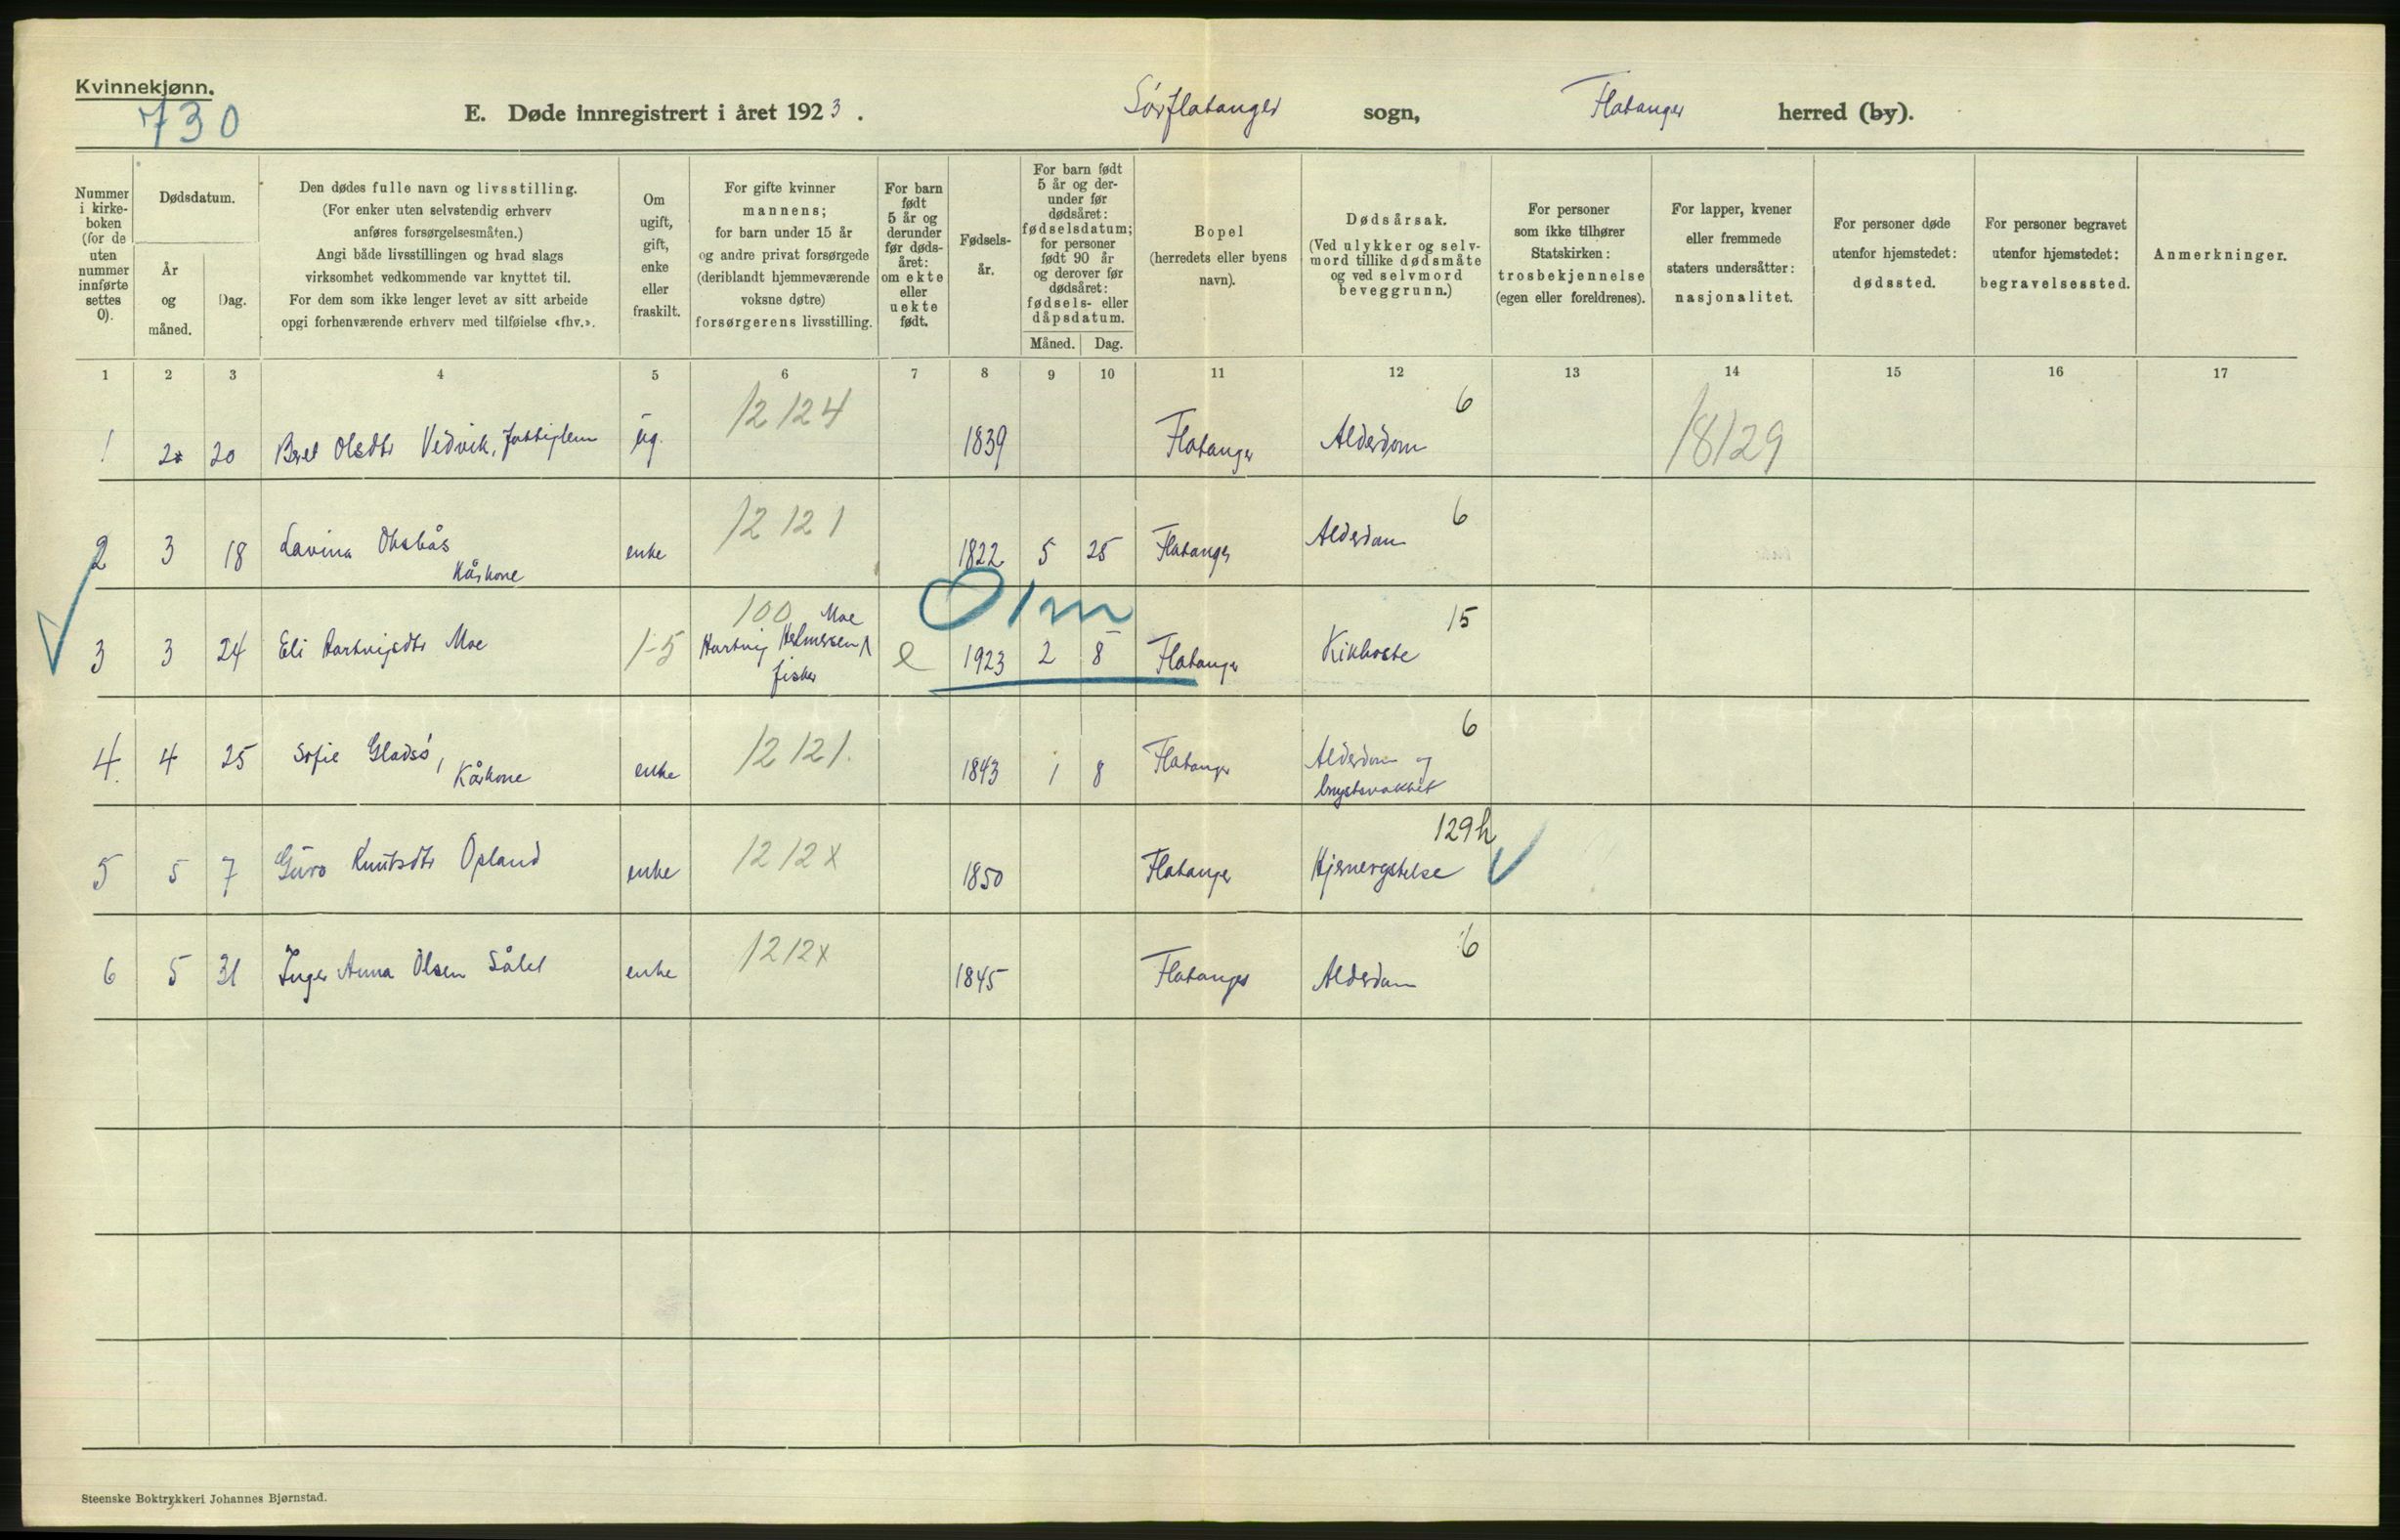 Kvinnekjønn.
730
E. Døde innregistrert i året 1923. Sørflatanger sogn, Flatanger herred (by).
Nummer i kirkeboken (for de uten nummer innførte settes 0).
Dødsdatum.
År og måned.
Dag.
Den dødes fulle navn og livsstilling.
(For enker uten selvstendig erhverv
anføres forsørgelsesmåten.)
Angi både livsstillingen og hvad slags
virksomhet vedkommende var knyttet til.
For dem som ikke lenger levet av sitt arbeide
opgi forhenværende erhverv med tilføielse «fhv.».
Om
ugift,
gift,
enke
eller
fraskilt.
For gifte kvinner
mannens;
for barn under 15 år
og andre privat forsørgede
(deriblandt hjemmeværende
voksne døtre)
forsørgerens livsstilling.
For barn
født
5 år og
derunder
før døds-
året:
om ekte
eller
uekte
født.
Fødsels-
år.
For barn født
5 år og der-
under før
dødsåret:
fødselsdatum;
for personer
født 90 år
og derover før
dødsåret:
fødsels- eller
dåpsdatum.
Måned. Dag.
Bopel
(herredets eller byens
navn).
Dødsårsak.
(Ved ulykker og selv-
mord tillike dødsmåte
og ved selvmord
beveggrunn.)
For personer
som ikke tilhører
Statskirken:
trosbekjennelse
(egen eller foreldrenes).
For lapper, kvener
eller fremmede
staters undersåtter:
nasjonalitet.
For personer døde
utenfor hjemstedet:
dødssted.
For personer begravet
utenfor hjemstedet:
begravelsessted.
Anmerkninger.
1 2 3 4 5 6 7 8 9 10 11 12 13 14 15 16 17
12124 6
1 2 20 Beret Olsdtr Vedvik, ug. 1839 Flatanger Alderdom 18129
12 121 6
2 3 18 Lavina Oksbås enke 1822 5 25 Flatanger Alderdom
Kårkone
01m
100 Moe 15
3 3 24 Eli Hartvigsdtr Moe 1-5 Hartvig Helmersen e 1923 2 8 Flatanger Kikhoste
fisker
12 121. 6
4. 4 25 Sofie Gladsø, enke 1843 1 8 Flatanger Alderdom og
Kårkone brystsvakhet
1212x 129h
5 5 7 Guro Knutsdtr Opland enke 1850 Flatanger Hjernerystelse
1212x 6
6 5 31 Inger Anna Olsen Sålel enke 1845 Flatanger Alderdom
Steenske Boktrykkeri Johannes Bjørnstad.